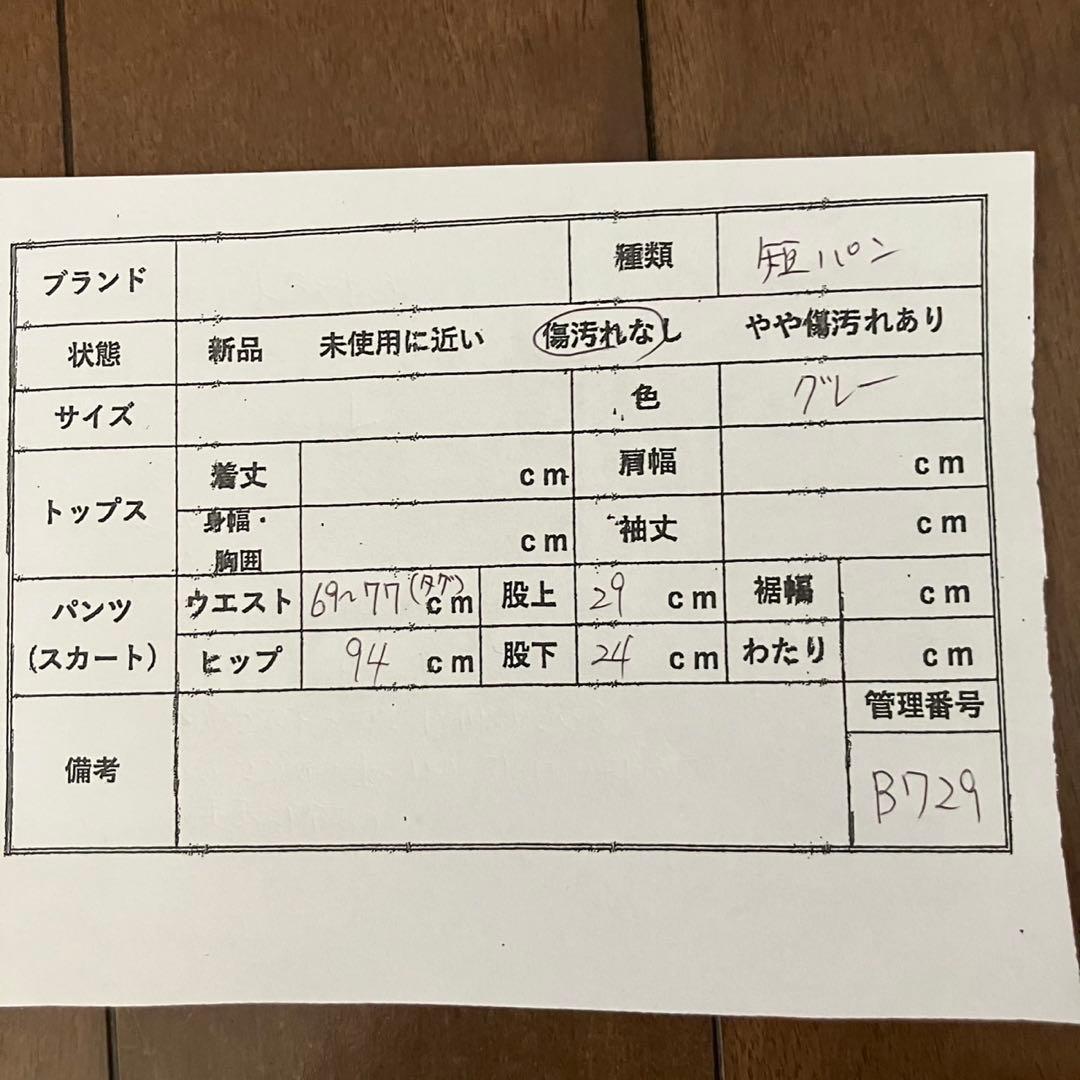 ブランド 種類 短パン
状態 新品 未使用に近い 傷汚れなし やや傷汚れあり
サイズ 色 グレー
トップス 着丈 cm 肩幅 cm
身幅・胸囲 cm 袖丈 cm
パンツ(スカート) ウエスト 69~77(タグ)cm 股上 29 cm 裾幅 cm
ヒップ 94 cm 股下 24 cm わたり cm
備考 管理番号
B729